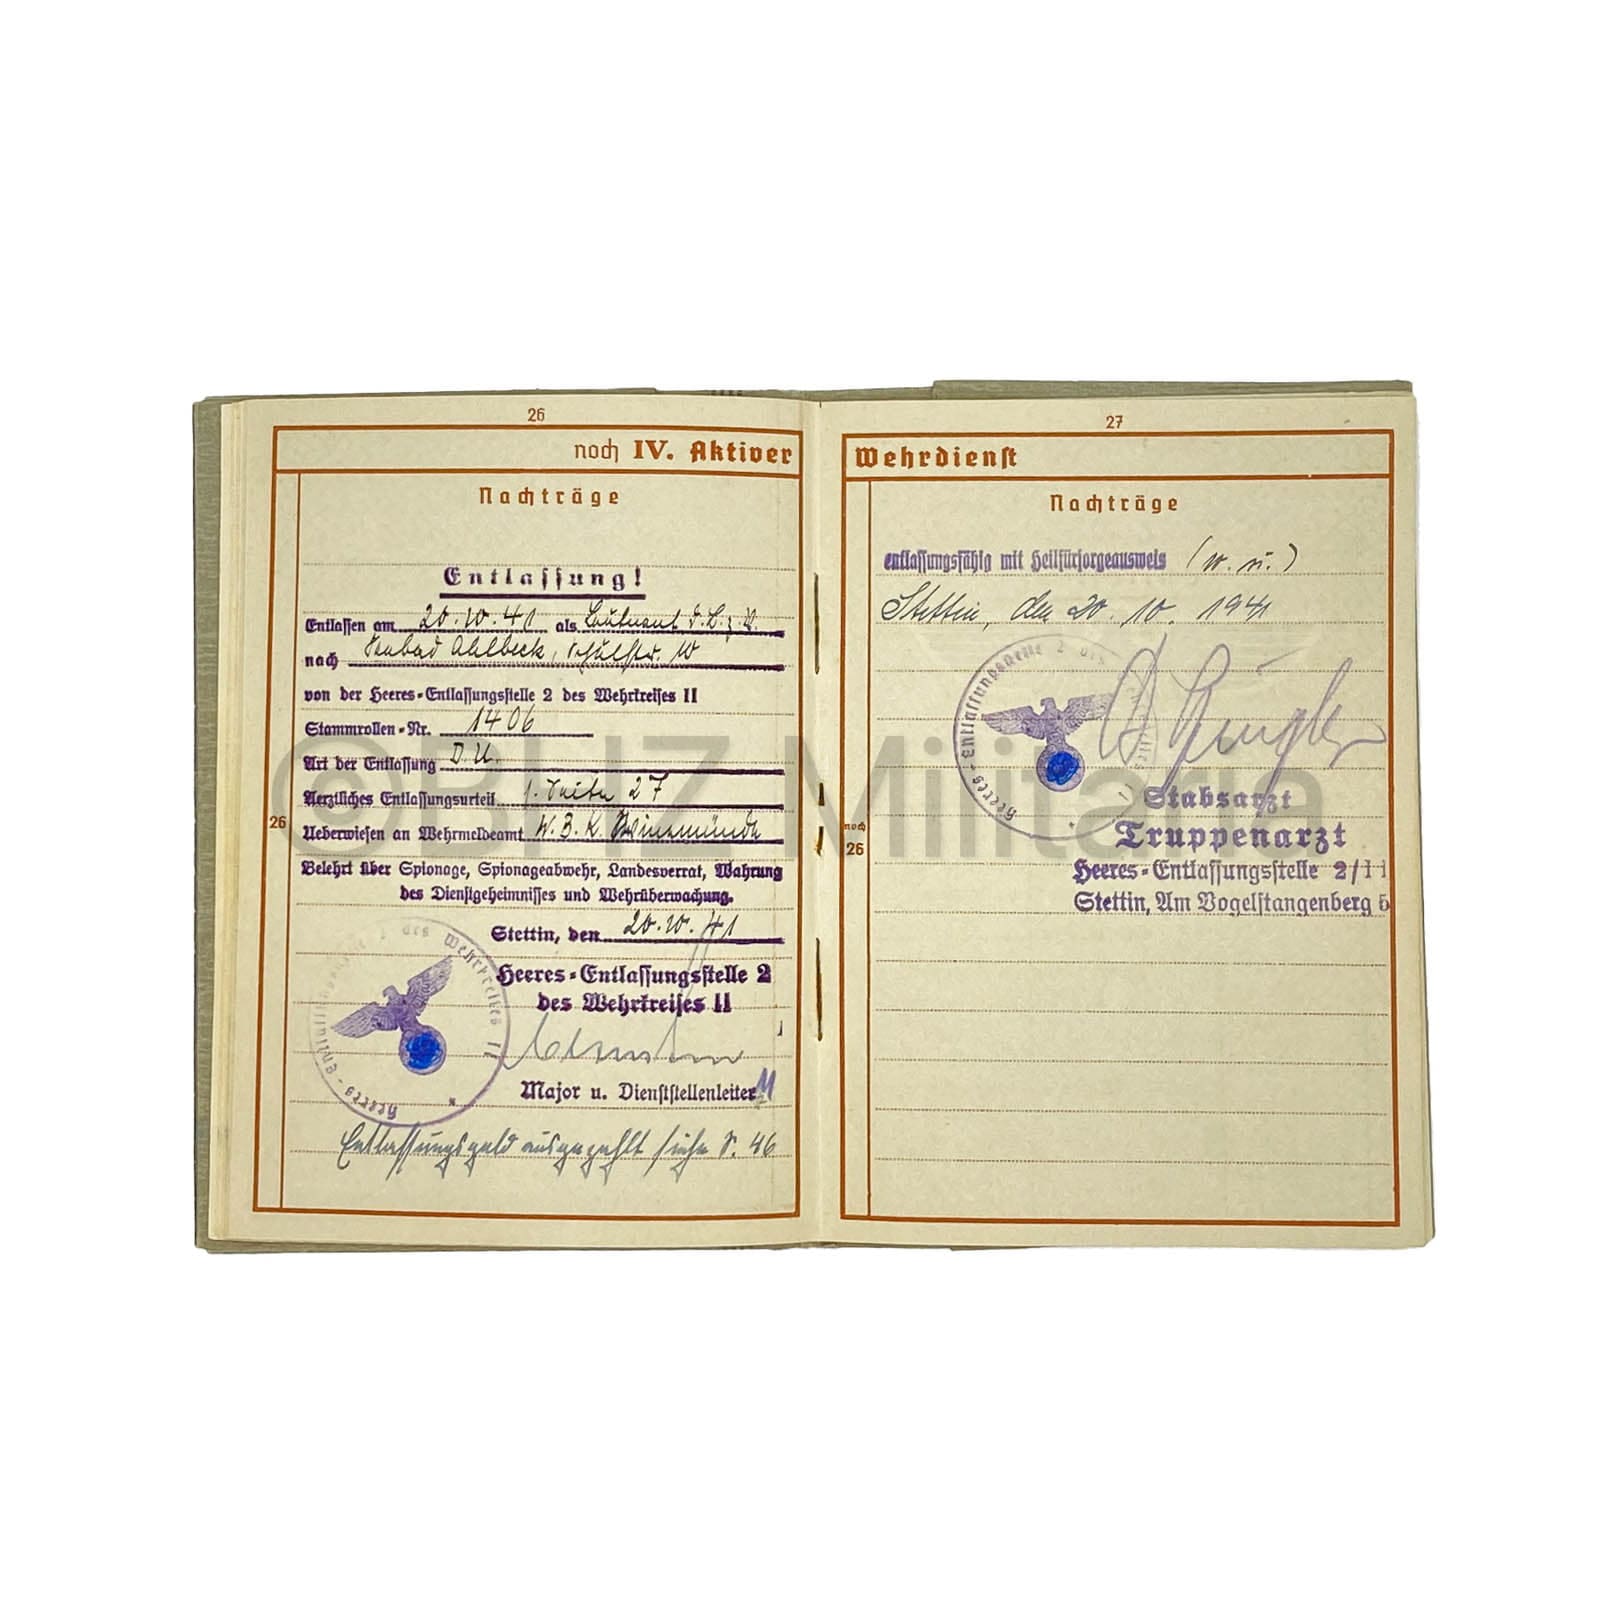 26
noch IV. Aktiver
Nachträge
Entlassung!
Entlassen am 20.10.41 als Leutnant d. L. z. V.
nach Seebad Ahlbeck, Schulstr. 10
von der Heeres-Entlassungsstelle 2 des Wehrkreises II
Stammrollen-Nr. 1406
Art der Entlassung D.U.
Aerztliches Entlassungsurteil s. Seite 27
26
Ueberwiesen an Wehrmeldeamt W.B.K. Swinemünde
Belehrt über Spionage, Spionageabwehr, Landesverrat, Wahrung
des Dienstgeheimnisses und Wehrüberwachung.
Stettin, den 20.10.41
Heeres-Entlassungsstelle 2
des Wehrkreises II
Heeres-Entlassungsstelle 2 des Wehrkreises II
Major u. Dienststellenleiter
Entlassungsgeld ausgezahlt siehe S. 46
27
Wehrdienst
Nachträge
entlassungsfähig mit Heilfürsorgeausweis (w. u.)
Stettin, den 20. 10. 1941
Heeres-Entlassungsstelle 2 des
Stabsarzt
Truppenarzt
noch
26
Heeres-Entlassungsstelle 2/II
Stettin, Am Vogelstangenberg 5
©BHZ Militaria